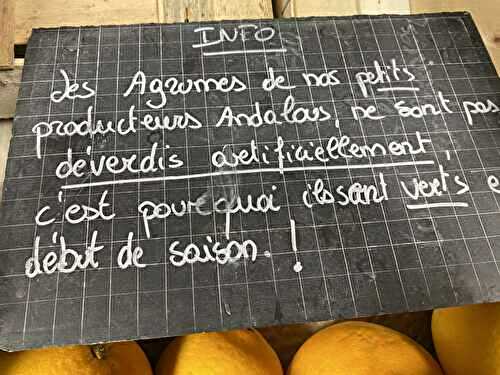 INFO
Les Agrumes de nos petits
producteurs Andalous, ne sont pas
déverdis artificiellement,
c'est pourquoi ils sont verts e
début de saison. !